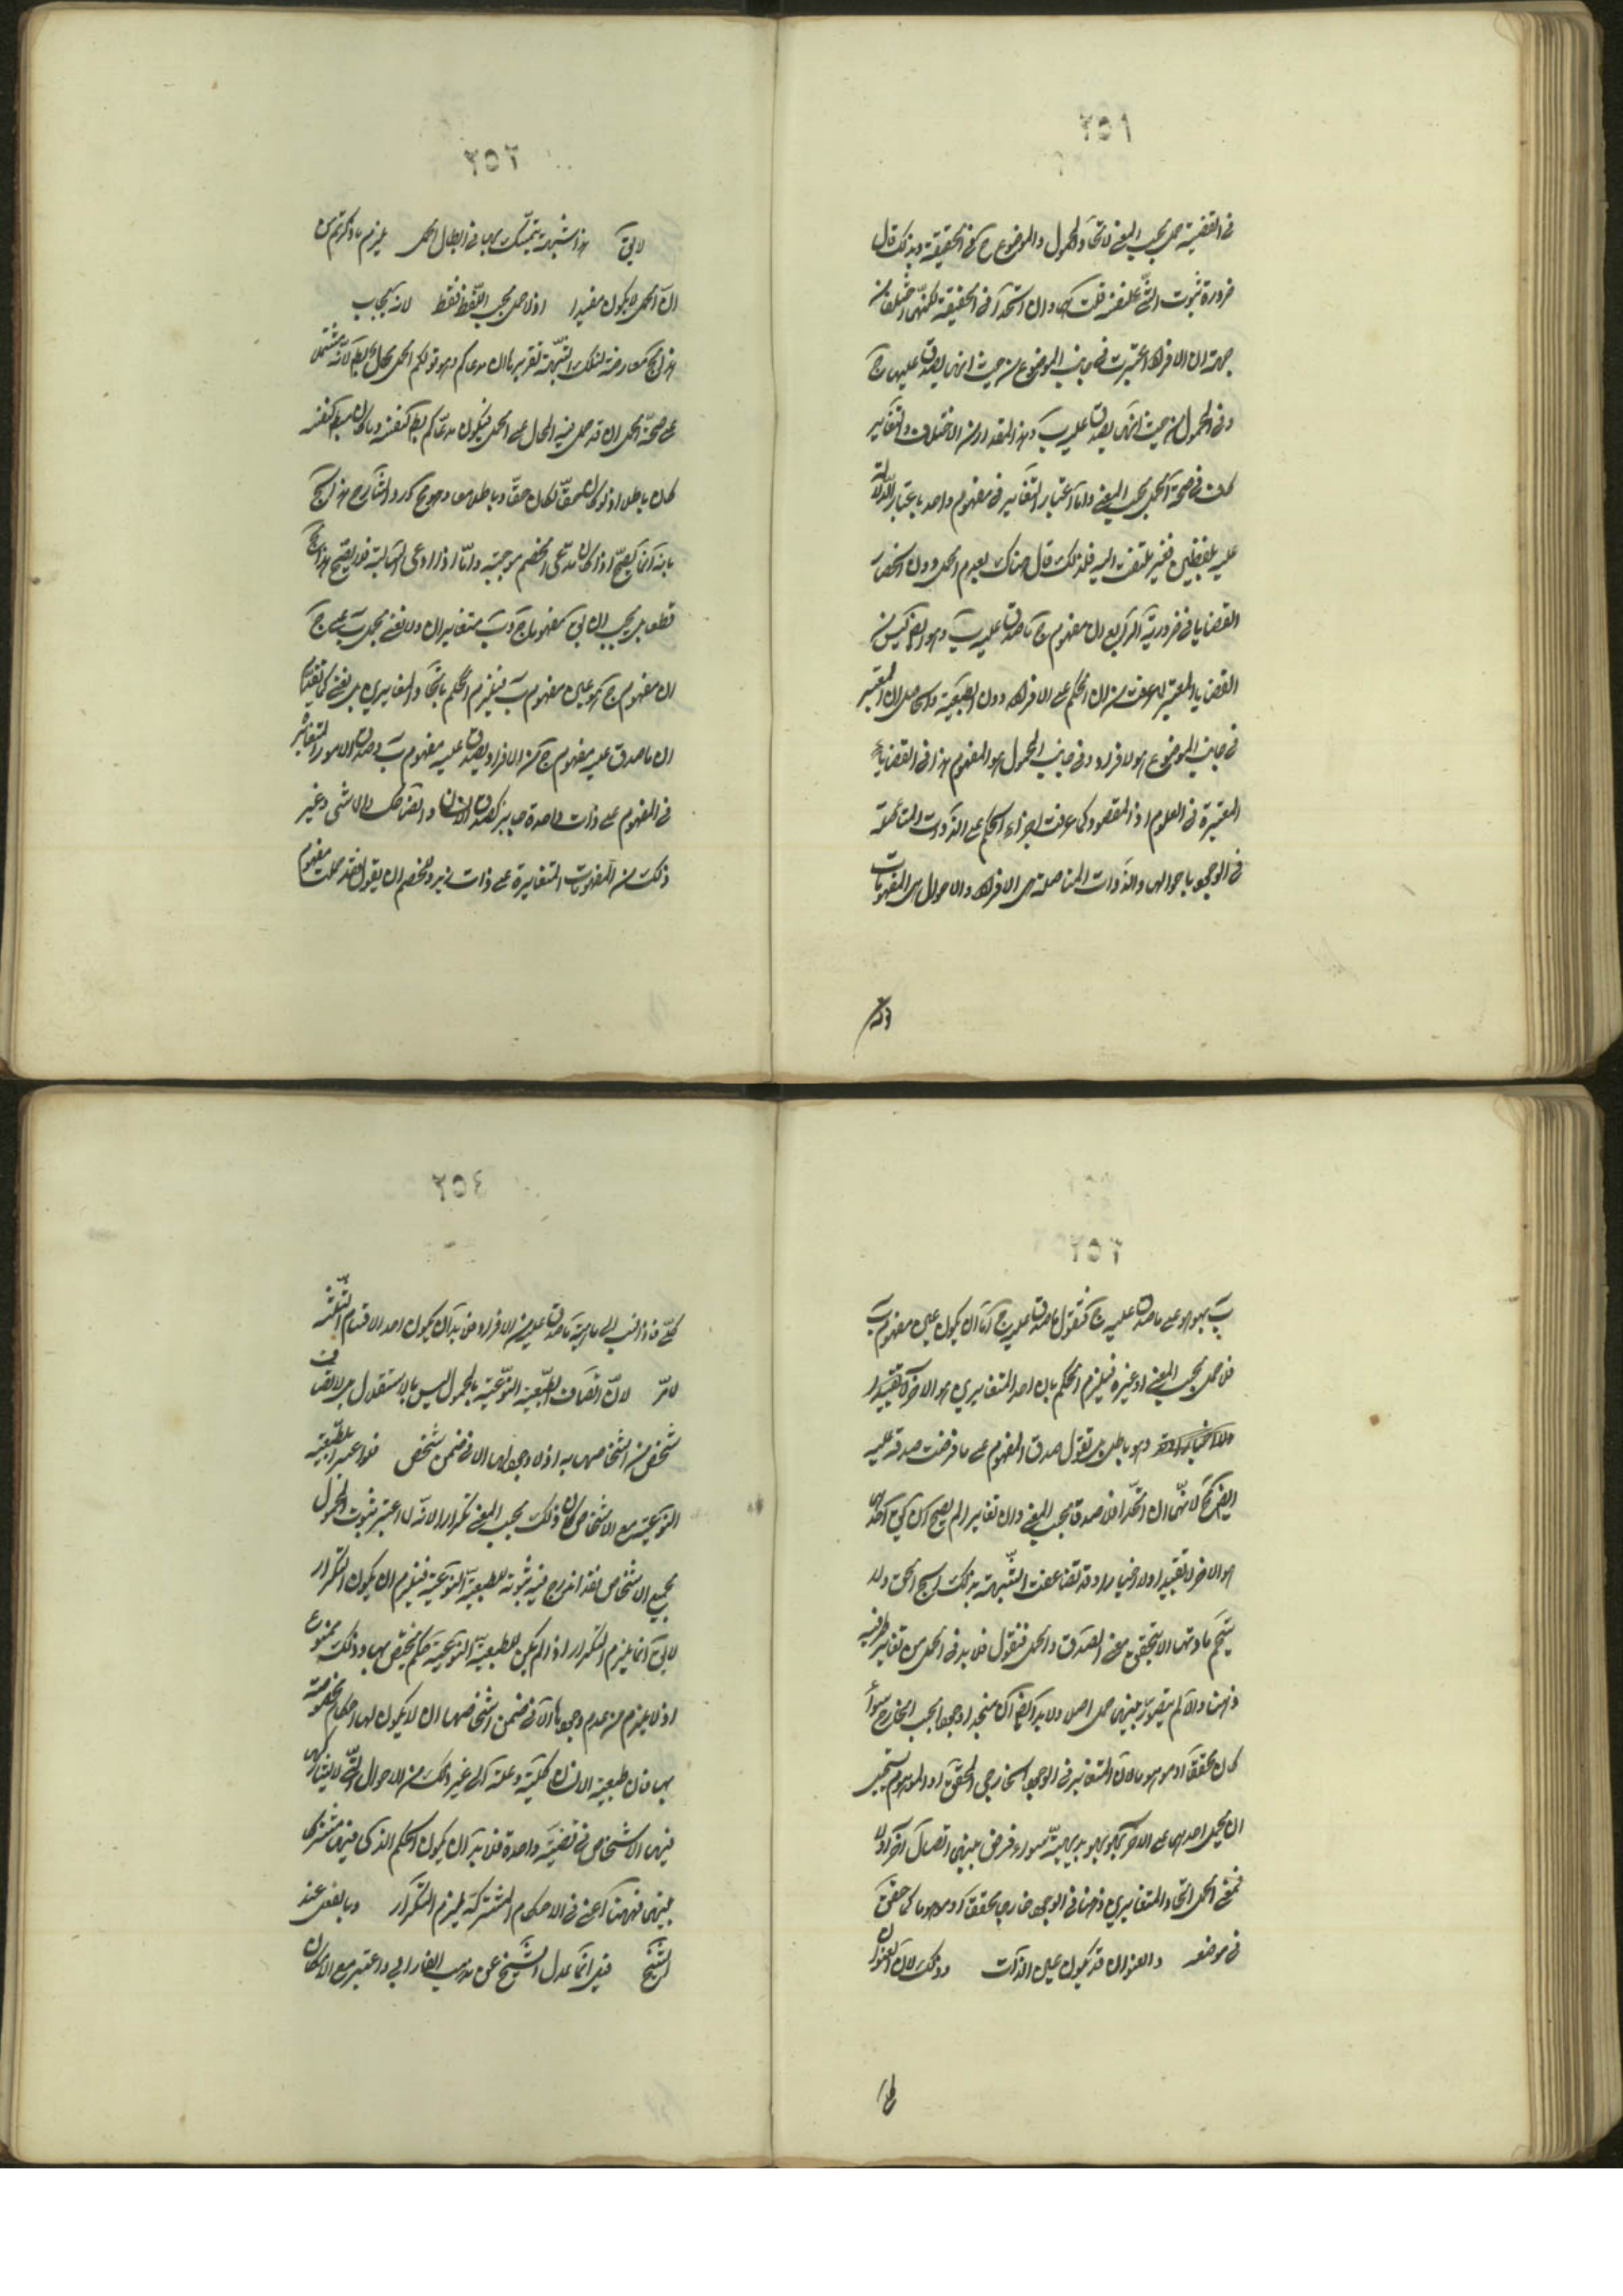 ٢٥١
في القضية حمل بحسب المعنى لاتحاد المحمول والموضوع ح في الحقيقة وبذلك قال
ضرورة ثبوت الشئ لنفسه قلت هما وان اتحدا في الحقيقة لكنهما مختلفان من
جهة ان الافراد اعتبرت في جانب الموضوع من حيث انها يصدق عليها ج
وفي المحمول من حيث انها يصدق عليه ب وهذا المقدار من الاختلاف والتغاير
كاف في صحة الحمل بحسب المعنى واما اعتبار التغاير في مفهوم واحد باعتبار الدلالة
عليه بلفظين فغير ملتفت اليه فلذلك قال هناك بعدم الحمل ودون انحصار
القضايا في ضرورية اذ لو اريد ان مفهوم ج ما صدق عليه ب وهو ايضا ليس من
القضايا المعتبرة لما عرفت من ان الحكم على الافراد دون الطبيعة والحاصل ان المعتبر
في جانب الموضوع هو الافراد وفي جانب المحمول هو المفهوم هذا في القضايا
المعتبرة في العلوم اذ المقصود كما عرفت اجراء الحكم على الذوات المتاصلة
في الوجود باحوالها والذوات المتاصلة هي الافراد والاحوال هي المفهومات
٢٥٢
لا يق هذا شبهة يتمسك بها في ابطال الحمل يلزم ما ذكرتم من
ان الحمل لا يكون مفيدا اذ لا حمل بحسب اللفظ فقط لانه يجاب
هذا الجـ معارضة لتلك الشبهة تقريرها ان مدعاكم وهو قولكم الحمل محال بط لانه مشتمل
على صحة الحمل اذ قد حمل فيه المحال على الحمل فيكون مدعاكم مبطلا لنفسه وما كان مبطلا لنفسه
كان باطلا اذ لو كان حقا لكان حقا وباطلا معا وهو مح ورد الشارح هذا الجـ
بانه انما يصح اذا كان مدعى الخصم موجبة واما اذا ادعى السالبة فلا يصح هذا الجـ
قطعا بل يجب ان يق مفهوما ج وب متغايران ولا نعني بحمل ب على ج
ان مفهوم ج هو عين مفهوم ب فيلزم الحكم باتحاد المتغايرين بل نعني كما تحققت
ان ما صدق عليه مفهوم ج من الافراد يصدق عليه مفهوم ب وصدق الامور المتغايرة
في المفهوم على ذات واحدة جايز كصدق الانسان والضاحك والماشي وغير
ذلك من المفهومات المتغايرة على ذات زيد وللخصم ان يقول قد حملت مفهوم
٢٥٣
ب بهو هو على ما صدق عليه ج فنقول ما صدق عليه ج اما ان يكون عين مفهوم ب
فلا حمل بحسب المعنى او غيره فيلزم الحكم بان احد المتغايرين هو الاخر
وهو باطل بل نقول صدق المفهوم على ما فرضت صدقه عليه
ايضا مح لانهما ان اتحدا فلا صدق بحسب المعنى وان تغايرا لم يصح ان يق احدهما
هو الاخر لا تقييدا ولا اخبارا وقد تضاعفت الشبهة بذلك الحق ولا
ينحسم مادتها الا بتحقيق معنى الصدق والحمل فنقول فلا بد في الحمل من تغاير طرفيه
ذهنا والا لم يتصور بينهما حمل اصلا ولا بد ايضا ان يتحدا وجودا بحسب الخارج سواء
كان محققا او موهوما لان المتغايرين في الوجود الخارجي المحقق او الموهوم يستحيل
ان يحمل احدهما على الاخر بهو هو بديهة سواء فرض بينهما اتصال اخر اولا
فمعنى الحمل اتحاد المتغايرين ذهنا في الوجود خارجا محققا او موهوما كما حقق
في موضعه والعنوان قد يكون عين الذات وذلك لان العنوان
٢٥٤
كلي فاذا نسب الى ماهية ما صدق عليه من الافراد فلا بد ان يكون احد الاقسام الثلثة
لا مر لان اتصاف الطبيعة النوعية بالمحمول ليس بالاستقلال بل لاتصاف
شخص من اشخاصها به اذ لا وجود لها الا في ضمن شخص فلو اعتبر الطبيعة
النوعية مع الاشخاص كان ذلك بحسب المعنى تكرارا لانه لما اعتبر ثبوت المحمول
لجميع الاشخاص فقد اندرج فيه ثبوته للطبيعة النوعية فيلزم ان يكون التكرار
لا يق انما يلزم التكرار اذا لم يكن للطبيعة النوعية حكم يختص بها وذلك ممنوع
اذ لا يلزم من عدم وجودها الا في ضمن اشخاصها ان لا يكون لها احكام مختصة
بها فان طبيعة الانسان كلية وعلة الى غير ذلك من الاحوال التي لا يشاركها
فيها الاشخاص في قضية واحدة فلا بد ان يكون الحكم الذي فيها مشتركا
بينهما فههنا اعني في الاحكام المشتركة يلزم التكرار وبالفعل عند
الشيخ قيل انما عدل الشيخ عن مذهب الفارابي واعتبر مع الامكان